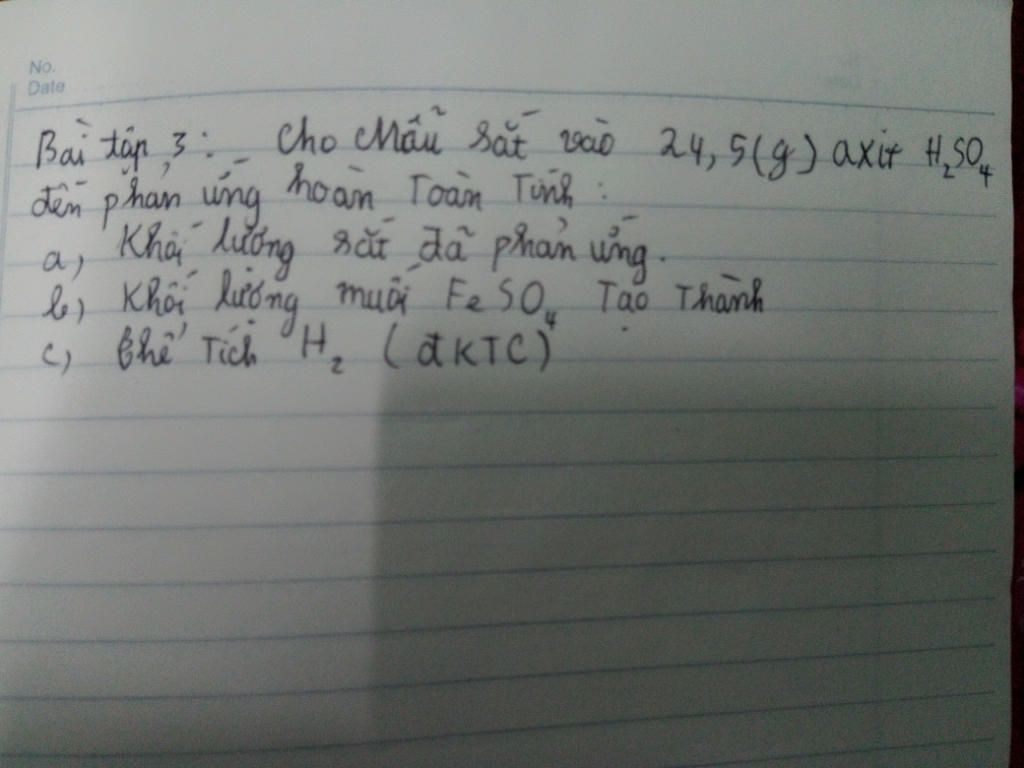 No.
Date
Bài tập 3: Cho Mẫu sắt vào 24,5(g) axit H₂SO₄
đến phản ứng hoàn Toàn Tính:
a, Khối lượng sắt đã phản ứng.
b, Khối lượng muối FeSO₄ Tạo Thành
c, Thể Tích H₂ (đKTC)